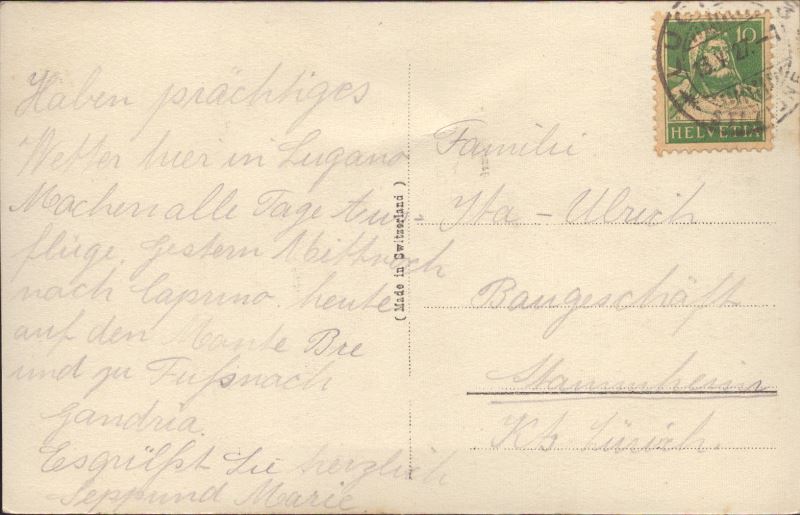 Haben prächtiges
Wetter hier in Lugano
Machen alle Tage Aus-
flüge. Gestern Mittwoch
nach Caprino, heute
auf den Monte Bre
und zu Fuß nach
Gandria.
Es grüßt Sie herzlich
Sepp und Marie
(Made in Switzerland)
10
HELVETIA
Familie
Ulrich
Baugeschäft
Stammheim
Kt. Zürich.